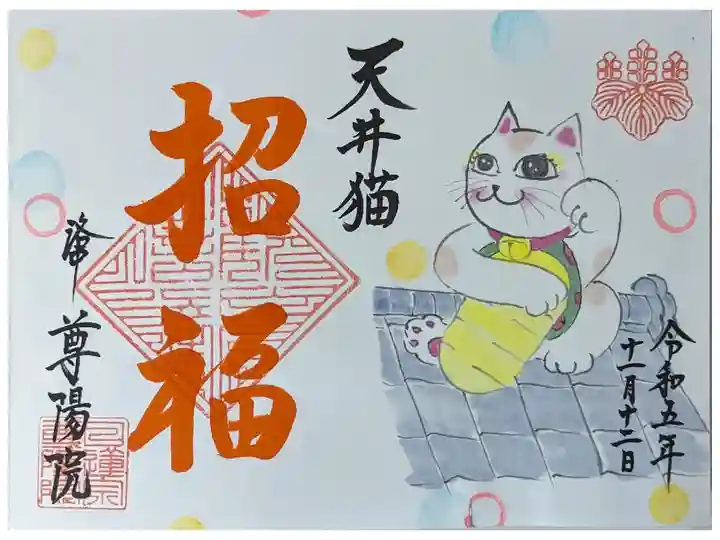 令和五年
十一月十二日
天井猫
招福
尊陽院